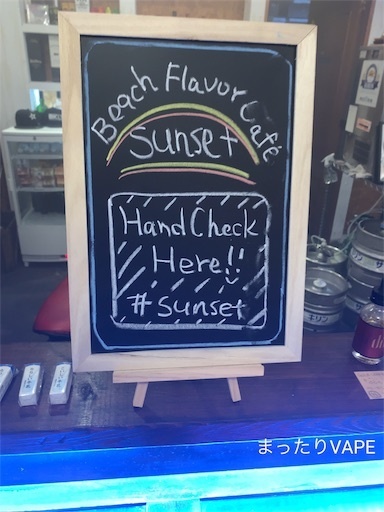 Beach Flavor Café
Sunset
Hand Check
Here!!
#sunset
まったりVAPE